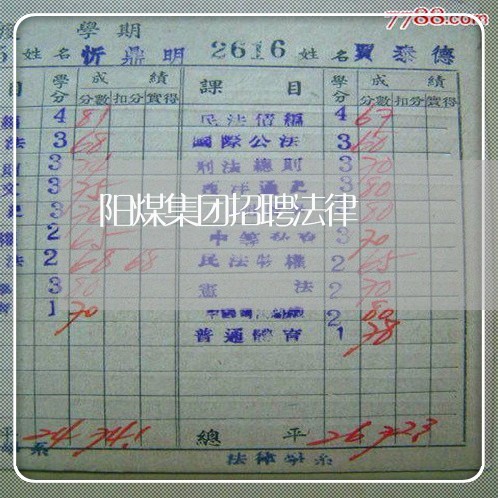 7788.com
學期
姓名 忻鼎明 2616 姓名 賈泰德
目 學分 成績 課目 學分 成績
分數 扣分 實得 分數 扣分 實得
4 81 民法債編 4 67
法 3 68 國際公法 3 60
3 刑法總則 3 70
3 75 西洋通史 3 80
3
阳煤集团招聘法律
2 65 3 70
法 2 68 68 民法物權 2 65
3 80 憲法 2 70
1 70 2 80
普通體育 1 78
平 24 74.1 總平 26 72.3
系 法律學系